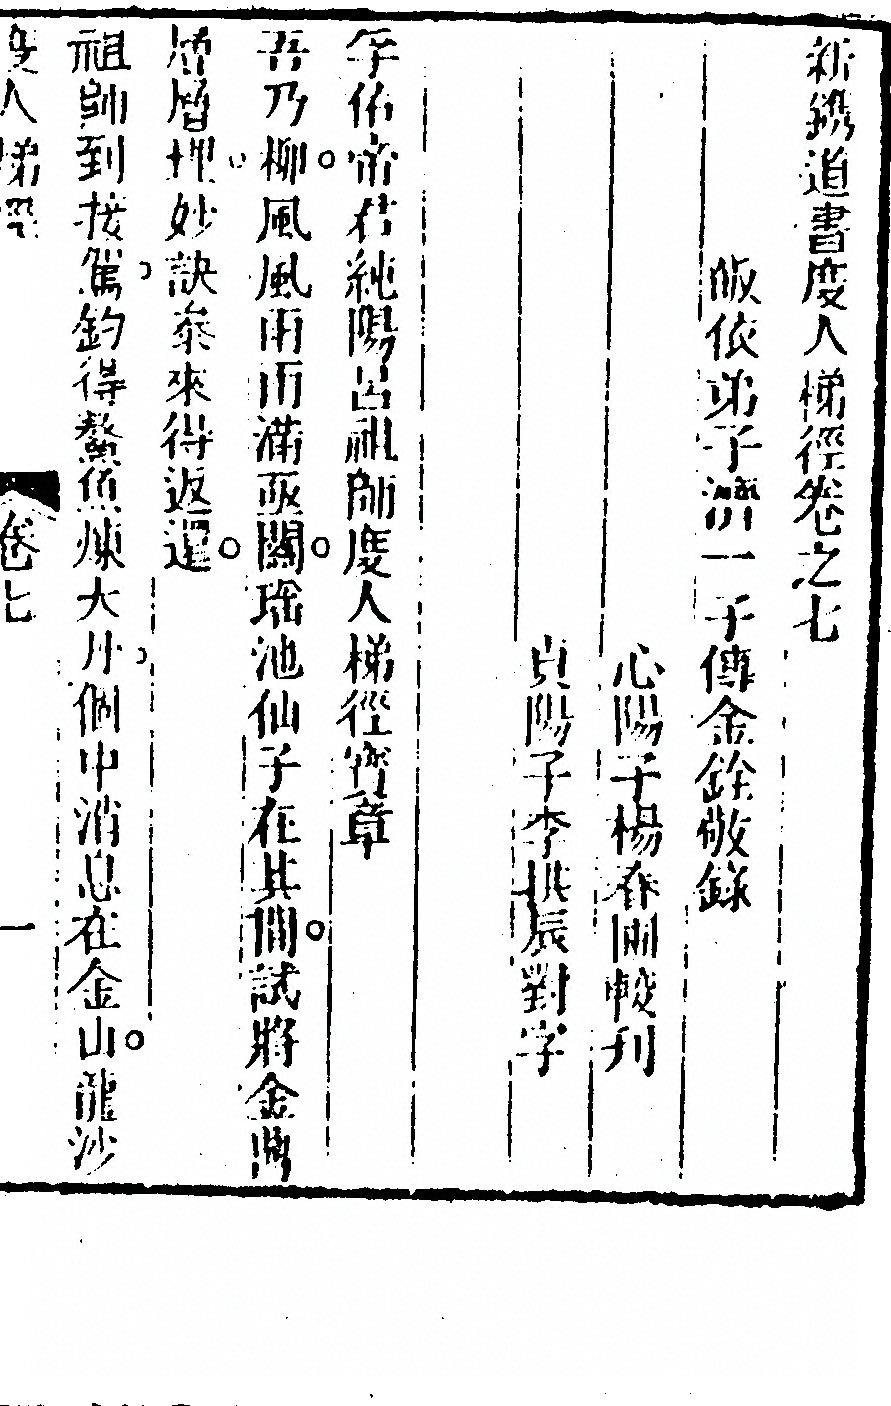 新鐫道書度人梯徑卷之七
皈依弟子濟一子傅金銓敬錄
心陽子楊春雨較刋
貞陽子李拱辰對字
孚佑帝君純陽呂祖師度人梯徑寶章
吾乃柳風風雨雨滿函關瑶池仙子在其間試將金鼎
層層理妙訣泰來得返還
祖師到接駕釣得鰲魚煉大丹個中消息在金山龍沙
度人梯徑 卷七 一